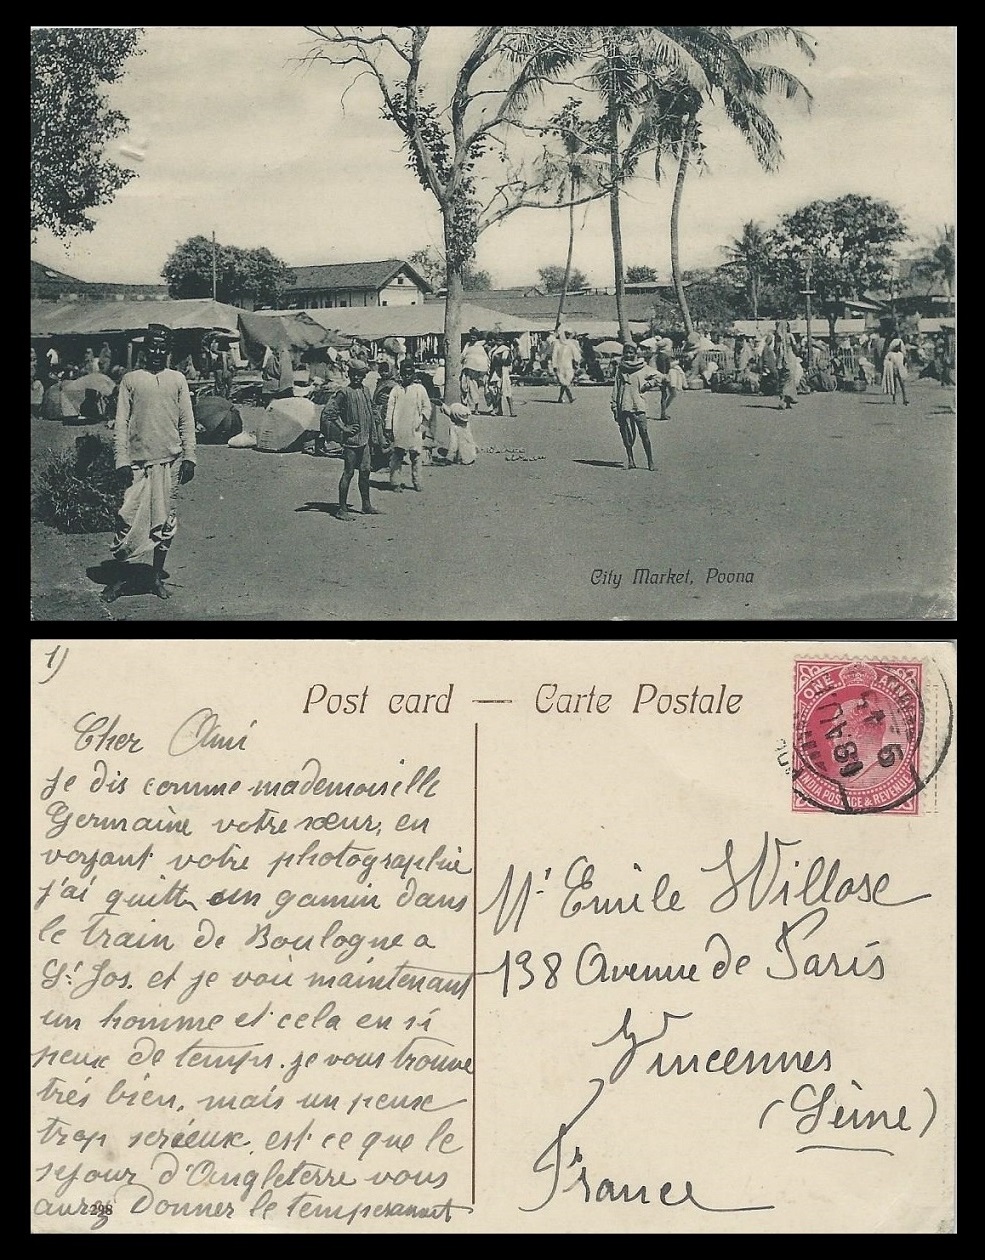 City Market, Poona
1)
Post card — Carte Postale
ONE ANNA
INDIA POSTAGE & REVENUE
Cher Ami
je dis comme mademoiselle
Germaine votre sœur, en
voyant votre photographie
j'ai quitté un gamin dans
le train de Boulogne a
St. Jos. et je voie maintenant
un homme et cela en si
peux de temps. je vous trouve
très bien, mais un peux
trop serieux, est ce que le
sejour d'Angleterre vous
aurez Donner le temperamment
298
Mr Emile Willose
138 Avenue de Paris
Vincennes
(Seine)
France